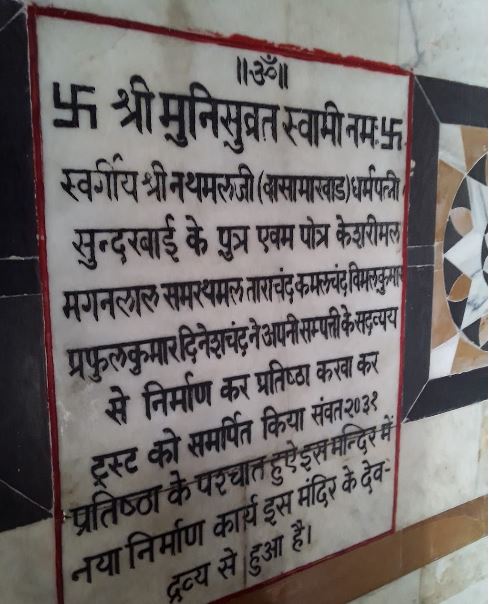 ॥ॐ॥
卐 श्री मुनिसुव्रत स्वामी नमः卐
स्वर्गीय श्री नथमलजी (वासामारवाड) धर्मपत्नी
सुन्दरबाई के पुत्र एवम पोत्र केशरीमल
मगनलाल समरथमल ताराचंद कमलचंद विमलकुमार
प्रफुलकुमार दिनेशचंद्र ने अपनी सम्पत्ती के सदव्यय
से निर्माण कर प्रतिष्ठा करवा कर
ट्रस्ट को समर्पित किया संवत २०३१
प्रतिष्ठा के पश्चात हुऐ इस मन्दिर में
नया निर्माण कार्य इस मंदिर के देव-
द्रव्य से हुआ है।